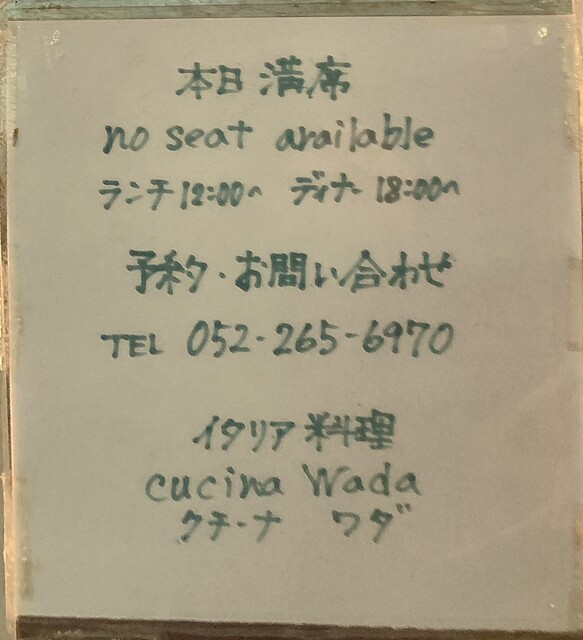 本日 満席
no seat available
ランチ 12:00〜 ディナー 18:00〜
予約・お問い合わせ
TEL 052-265-6970
イタリア 料理
cucina Wada
クチーナ ワダ